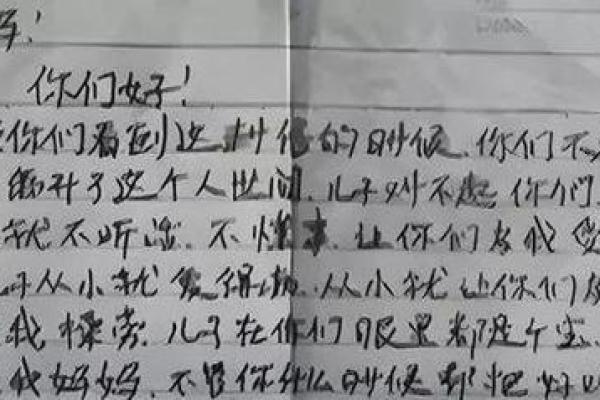 你们好!
你们看到这封信的时候,你们不
离开了这个人世间,儿子对不起你们
就不听话,不懂事,让你们为我
从小就 ,从小就让你们
我操劳,儿子在你们眼里都是个
我妈妈,不管你什么时候都把好